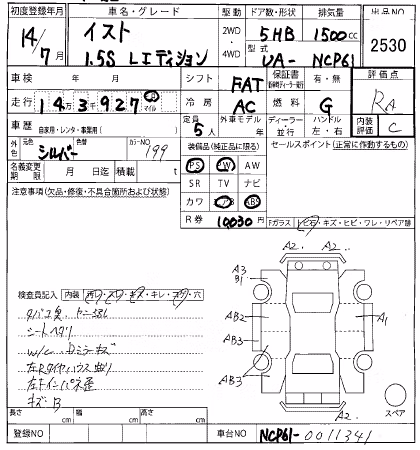 初度登録年月 車名・グレード 駆動 ドア数・形状 排気量 出品NO
14/7 イスト 1.5S Lエディション 2WD・4WD 5HB 1500cc 2530
型式 UA- NCP61
車検 年 月 日 シフト FAT 保証書 有・無 評価点
走行 14万3千927 km マイル 冷房 AC 燃料 G RA
車歴 自家用・レンタ・事業用( ) 定員 5人 外車モデル 年 ディーラー・並行 ハンドル 左・右 内装評価 C
外色 元色 シルバー 色替 カラーNO 199 装備品(純正品に限る) セールスポイント(正常に作動するもの)
名義変更期限 月 日迄 積載 t
PS PW AW
SR TV ナビ
カワ エアB ABS
R券 10030円
注意事項(欠品・修復・不具合箇所および状態)
Fガラス トビ石・キズ・ヒビ・ワレ・リペア跡
A2. A2.
A3
B1
AB2 A1
AB3
AB3
A2.
スペア
検査員記入 内装 汚レ・スレ・キズ・キレ・コゲ・穴
タバコ臭、ヤニ
シートヘタリ
w/c Dミラーキズ
左Rタイヤハウス曲り
左Fインパネ歪
キズ・B
長さ cm 幅 cm 高さ cm
登録NO 車台NO NCP61-0011341